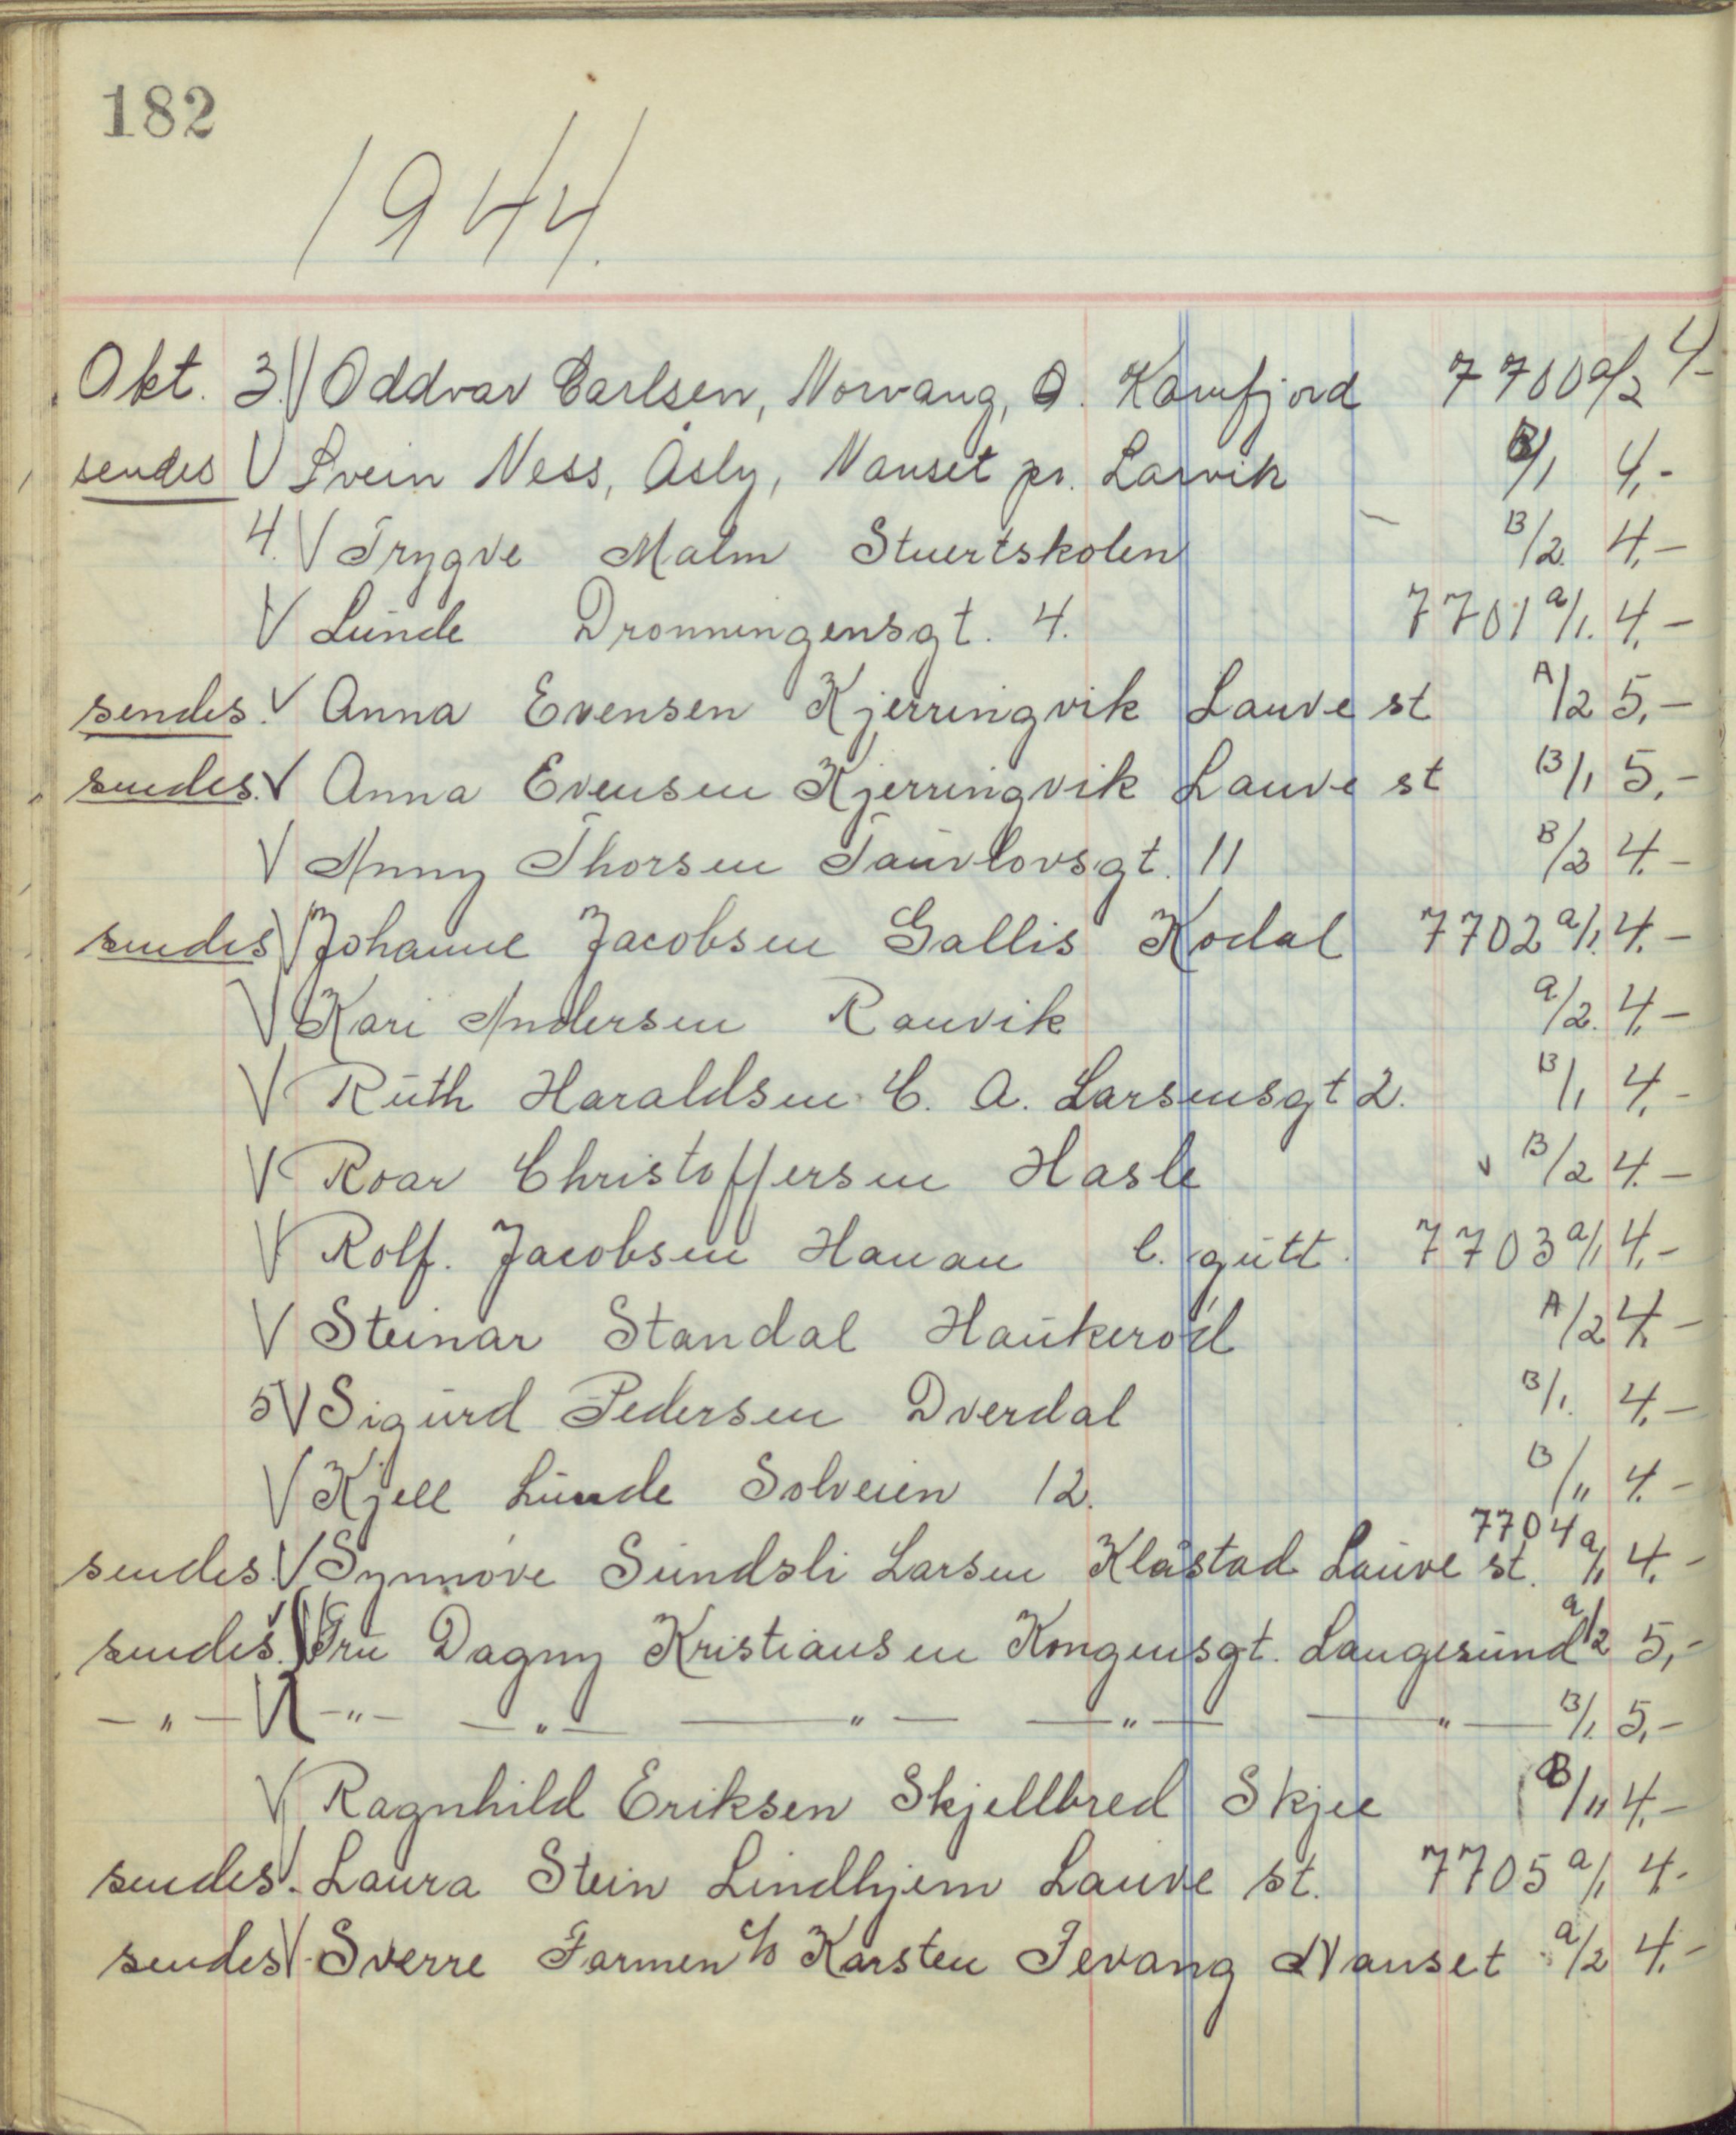 182
1944.
Okt. 3. V Oddvar Carlsen, Norvang, Ø. Kamfjord 7700 a/2 4-
sendes V Svein Ness, Åsly, Nanset pr. Larvik B/1 4,-
4. V Trygve Malm Stuertskolen B/2. 4,-
V Lunde Dronningensgt. 4. 7701 a/1. 4,-
sendes. V Anna Evensen Kjerringvik Lauve st A/2 5,-
sendes. V Anna Evensen Kjerringvik Lauve st B/1 5,-
V Anny Thorsen Taulovsgt. 11 B/2 4.-
sendes V Johanne Jacobsen Gallis Kodal 7702 a/1. 4.-
V Kari Andersen Ranvik a/2. 4,-
V Ruth Haraldsen C. A. Larsensgt 2. B/1 4,-
V Roar Christoffersen Hasle v B/2 4.-
V Rolf. Jacobsen Hauan l. gutt. 7703 a/1 4,-
V Steinar Standal Haukerød A/2 4,-
5 V Sigurd Pedersen Dverdal B/1. 4,-
V Kjell Lunde Solveien 12. B/" 4.-
7704
sendes. V Synnøve Sundsli Larsen Klåstad Lauve st. a/1 4.-
sendes. V Fru Dagny Kristiansen Kongensgt. Langesund a/2 5,-
- " - V - " - - " - - " - - " - - " - B/1. 5,-
V Ragnhild Eriksen Skjellbred Skjee B/" 4.-
sendes V. Laura Stein Lindhjem Lauve st. 7705 a/1 4.-
sendes V Sverre Farmen c/o Karsten Jevang Nanset a/2 4.-